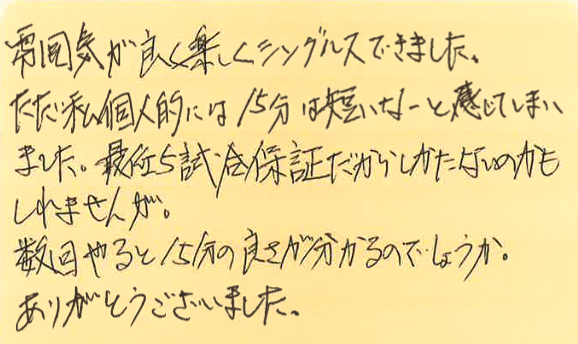 雰囲気が良く楽しくシングルスできました。
ただ私個人的には15分は短いなーと感じてしまい
ました。最低5試合保証だからしかたないのかも
しれませんが。
数回やると15分の良さが分かるのでしょうか。
ありがとうございました。